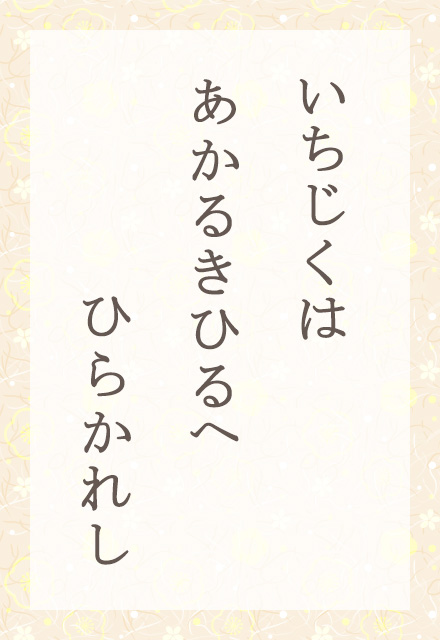 いちじくは
あかるきひるへ
ひらかれし